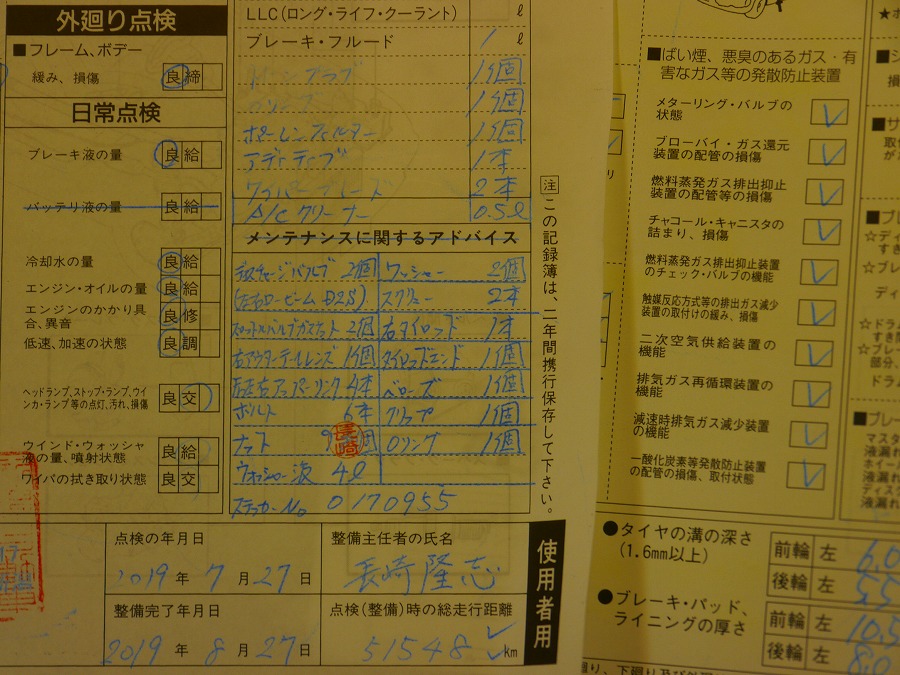 外廻り点検
■フレーム、ボデー
緩み、損傷 良 締
日常点検
ブレーキ液の量 良 給
バッテリ液の量 良 給
冷却水の量 良 給
エンジン・オイルの量 良 給
エンジンのかかり具合、異音 良 修
低速、加速の状態 良 調
ヘッドランプ、ストップ・ランプ、ウインカ・ランプ等の点灯、汚れ、損傷 良 交
ウインド・ウォッシャ液の量、噴射状態 良 給
ワイパの拭き取り状態 良 交
LLC(ロング・ライフ・クーラント) ℓ
ブレーキ・フルード 1 ℓ
ドレンプラグ 1個
Oリング 1個
ポーレンフィルター 1個
アディティブ 1本
ワイパーブレード 2本
A/Cクリーナー 0.5ℓ
メンテナンスに関するアドバイス
2個 ワッシャー 2個
(左右ロービーム D2S) スクリュー 2本
2個 右タイロッド 1本
右アウターテールレンズ 1個 タイロッドエンド 1個
左右アッパーリンク 4本 ベローズ 1個
ボルト 6本 クリップ 1個
ナット 9個 Oリング 1個
長崎
ウォッシャー液 4ℓ
ステッカーNo 0170955
注 この記録簿は、二年間携行保存して下さい。
点検の年月日
2019年 7月27日
整備主任者の氏名
長崎隆志
整備完了年月日
2019年 8月27日
点検(整備)時の総走行距離
51548 km
使用者用
■ばい煙、悪臭のあるガス・有害なガス等の発散防止装置
メターリング・バルブの状態
ブローバイ・ガス還元装置の配管の損傷
燃料蒸発ガス排出抑止装置の配管等の損傷
チャコール・キャニスタの詰まり、損傷
燃料蒸発ガス排出抑止装置のチェック・バルブの機能
触媒反応方式等の排出ガス減少装置の取付けの緩み、損傷
二次空気供給装置の機能
排気ガス再循環装置の機能
減速時排気ガス減少装置の機能
一酸化炭素等発散防止装置の配管の損傷、取付状態
●タイヤの溝の深さ(1.6mm以上)
前輪 左 6.0
後輪 左 5.5
●ブレーキ・パッド、ライニングの厚さ
前輪 左 10.5
後輪 左 8.0